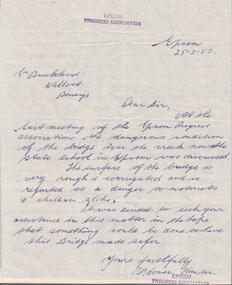 EPSOM
PROGRESS ASSOCIATION
Epsom
25-3-57.
Mr Buckland
Bendigo
Dear Sir,
At the
last meeting of the Epsom Progress
association the dangerous condition
of the bridge over the creek near the
State School in Epsom was discussed.
The surface of the bridge is
very rough & corrugated and is
regarded as a danger to motorists
& children alike.
It was decided to seek your
assistance in this matter in the hope
that something could be done to have
this Bridge made safer.
Yours faithfully
EPSOM
PROGRESS ASSOCIATION